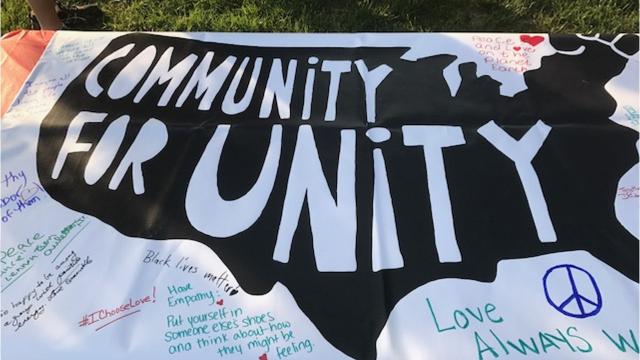 COMMUNiTY
FOR UNiTY
Peace
and Love
on the
Planet
Earth
Black lives matter
#IChooseLove!
Have
Empathy.
Put yourself in
someone else's shoes
and think about how
they might be
feeling.
Love
ALWAYS W